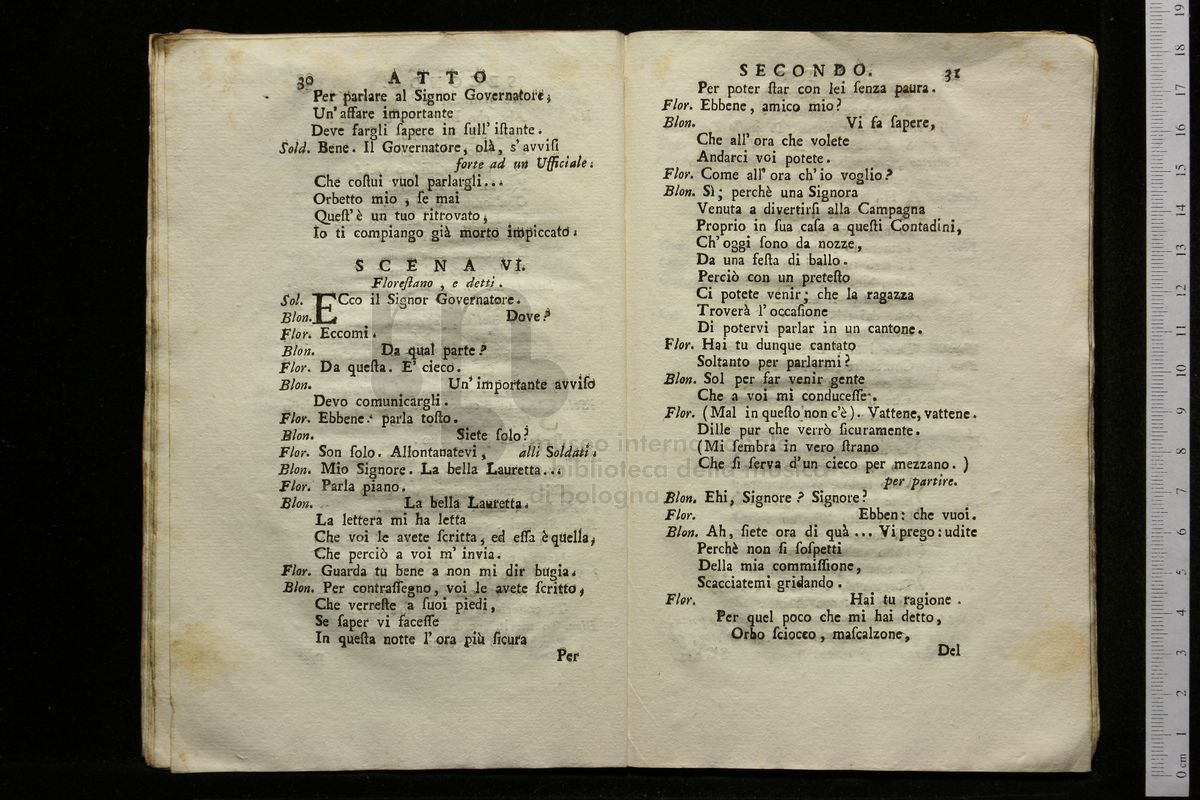 30 ATTO
Per parlare al Signor Governatore;
Un' affare importante
Deve fargli ſapere in ſull' iſtante.
Sold. Bene. Il Governatore, olà, s'avviſi
forte ad un Ufficiale.
Che coſtui vuol parlargli...
Orbetto mio, ſe mai
Queſt' è un tuo ritrovato,
Io ti compiango già morto impiccato.
SCENA VI.
Floreſtano, e detti.
Sol. ECco il Signor Governatore.
Blon. Dove?
Flor. Eccomi.
Blon. Da qual parte?
Flor. Da queſta. E' cieco.
Blon. Un' importante avviſo
Devo comunicargli.
Flor. Ebbene: parla toſto.
Blon. Siete ſolo?
Flor. Son ſolo. Allontanatevi, alli Soldati.
Blon. Mio Signore. La bella Lauretta...
Flor. Parla piano.
Blon. La bella Lauretta.
La lettera mi ha letta
Che voi le avete ſcritta, ed eſſa è quella,
Che perciò a voi m' invia.
Flor. Guarda tu bene a non mi dir bugia.
Blon. Per contraſſegno, voi le avete ſcritto,
Che verreſte a ſuoi piedi,
Se ſaper vi faceſſe
In queſta notte l' ora più ſicura
Per
SECONDO. 31
Per poter ſtar con lei ſenza paura.
Flor. Ebbene, amico mio?
Blon. Vi fa ſapere,
Che all' ora che volete
Andarci voi potete.
Flor. Come all' ora ch' io voglio?
Blon. Sì; perchè una Signora
Venuta a divertirſi alla Campagna
Proprio in ſua caſa a queſti Contadini,
Ch' oggi ſono da nozze,
Da una feſta di ballo.
Perciò con un preteſto
Ci potete venir; che la ragazza
Troverà l' occaſione
Di potervi parlar in un cantone.
Flor. Hai tu dunque cantato
Soltanto per parlarmi?
Blon. Sol per far venir gente
Che a voi mi conduceſſe.
Flor. (Mal in queſto non c'è). Vattene, vattene.
Dille pur che verrò ſicuramente.
(Mi ſembra in vero ſtrano
Che ſi ſerva d'un cieco per mezzano.)
per partire.
Blon. Ehi, Signore? Signore?
Flor. Ebben: che vuoi.
Blon. Ah, ſiete ora di quà... Vi prego: udite
Perchè non ſi ſoſpetti
Della mia commiſſione,
Scacciatemi gridando.
Flor. Hai tu ragione.
Per quel poco che mi hai detto,
Orbo ſciocco, maſcalzone,
Del
museo internazionale
biblioteca della musica
di bologna
0 cm 1 2 3 4 5 6 7 8 9 10 11 12 13 14 15 16 17 18 19